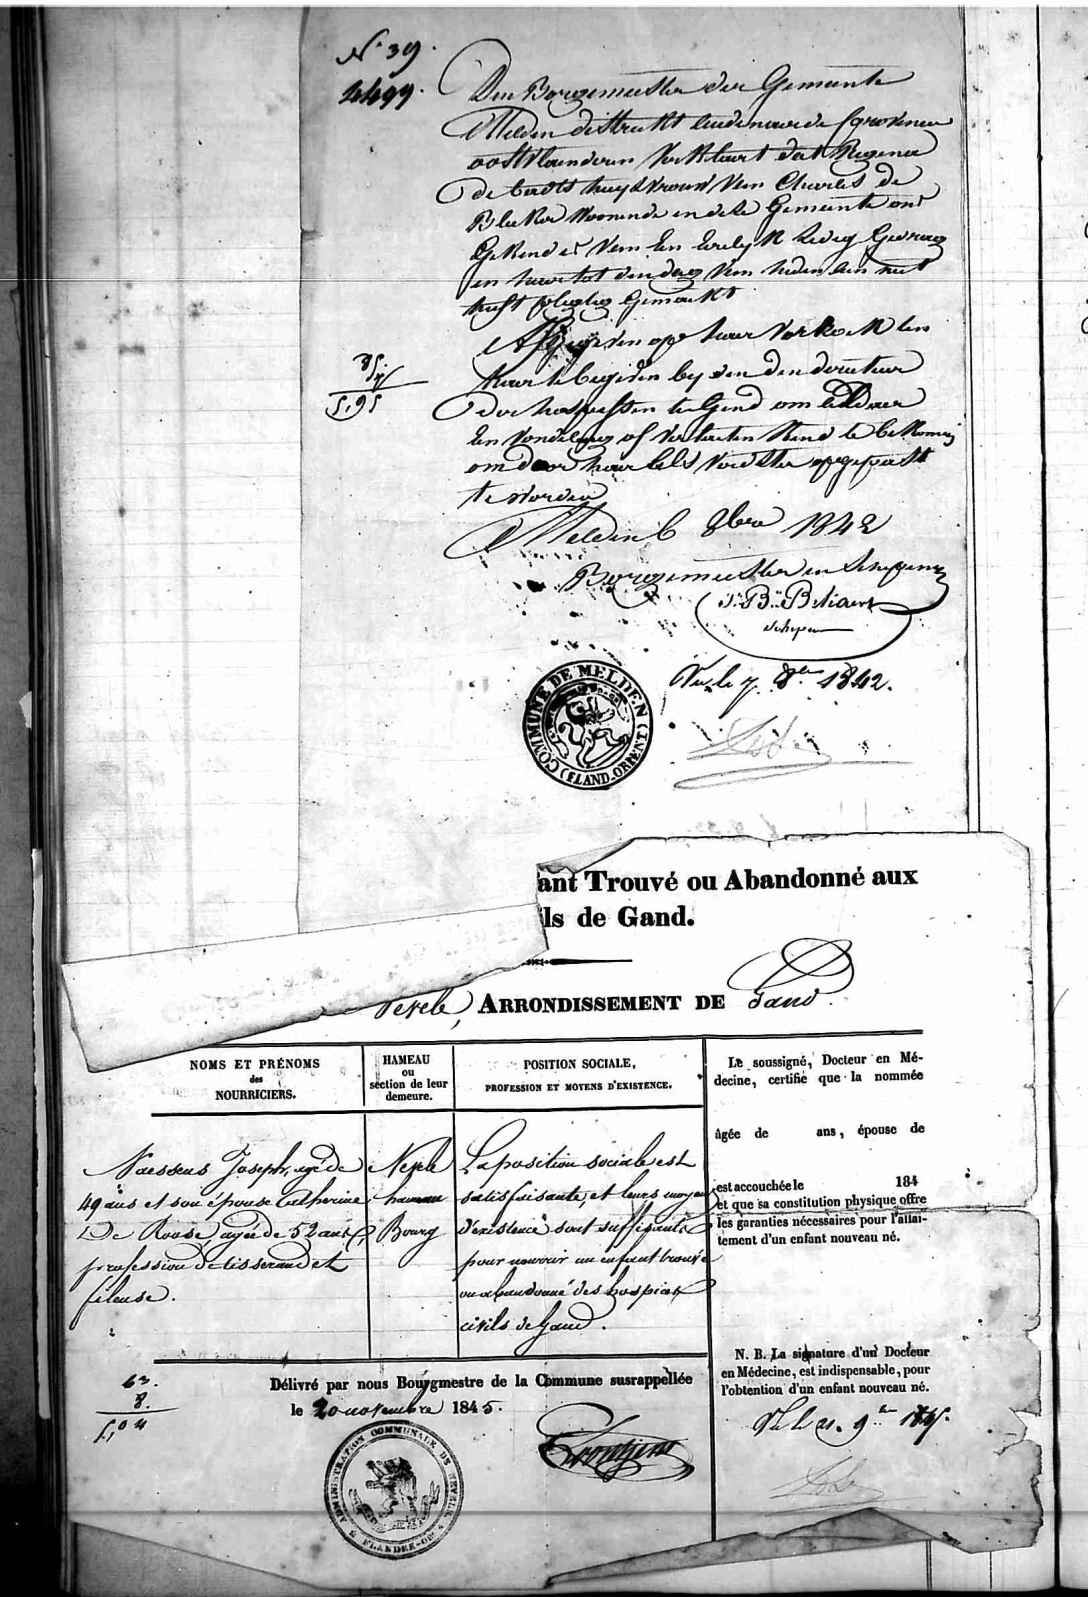 N.° 39.
4499.
Den Borgemeester der Gemeente
Melden distrikt audenaerde provincie
oostvlaenderen Verklaert dat Regina
de huysvrouw Van Charles de
Blekker Woonende in deze Gemeente ons
Gekend is Van Een Eerlyk Zedig Gedrag
en haer tot den dag Van heden aen
pligtig Gemaekt
Afgegeven op haer Verzoek len
haer te begeven by den directeur
der hospicen te Gend om aldaer
Een Vondeling of Verlaeten Kind te bekomen
om door haer Zelfs opgepast
te worden
Melden 6 8bre 1842
Borgemeester en Schepenen
J. B. Beliaert
schepen
Vu le 7 8bre 1842.
COMMUNE DE MELDEN (FLAND. ORIENT)
5,95
ant Trouvé ou Abandonné aux
ils de Gand.
Nevele, ARRONDISSEMENT DE Gand.
NOMS ET PRÉNOMS
des
NOURRICIERS.
HAMEAU
ou
section de leur
demeure.
POSITION SOCIALE,
PROFESSION ET MOYENS D'EXISTENCE.
Naessens Joseph, agé de
49 ans et son épouse Catherine
De Roose, agée de 52 ans,
profession de tisserand et
fileuse.
Nevele
hameau
Bourg
La position sociale est
satisfaisante, et leurs moyens
d'existence sont suffisants
pour nourrir un enfant trouvé
ou abandonné des hospices
civils de Gand.
Le soussigné, Docteur en Mé-
decine, certifie que la nommée
âgée de ans, épouse de
est accouchée le 184
et que sa constitution physique offre
les garanties nécessaires pour l'allai-
tement d'un enfant nouveau né.
N. B. La signature d'un Docteur
en Médecine, est indispensable, pour
l'obtention d'un enfant nouveau né.
Vu le 21. 9bre 1845.
Délivré par nous Bourgmestre de la Commune susrappellée
le 20 novembre 1845.
63.
8.
5,04
ADMINISTRATION COMMUNALE DE NEVELE
FLANDRE-OR